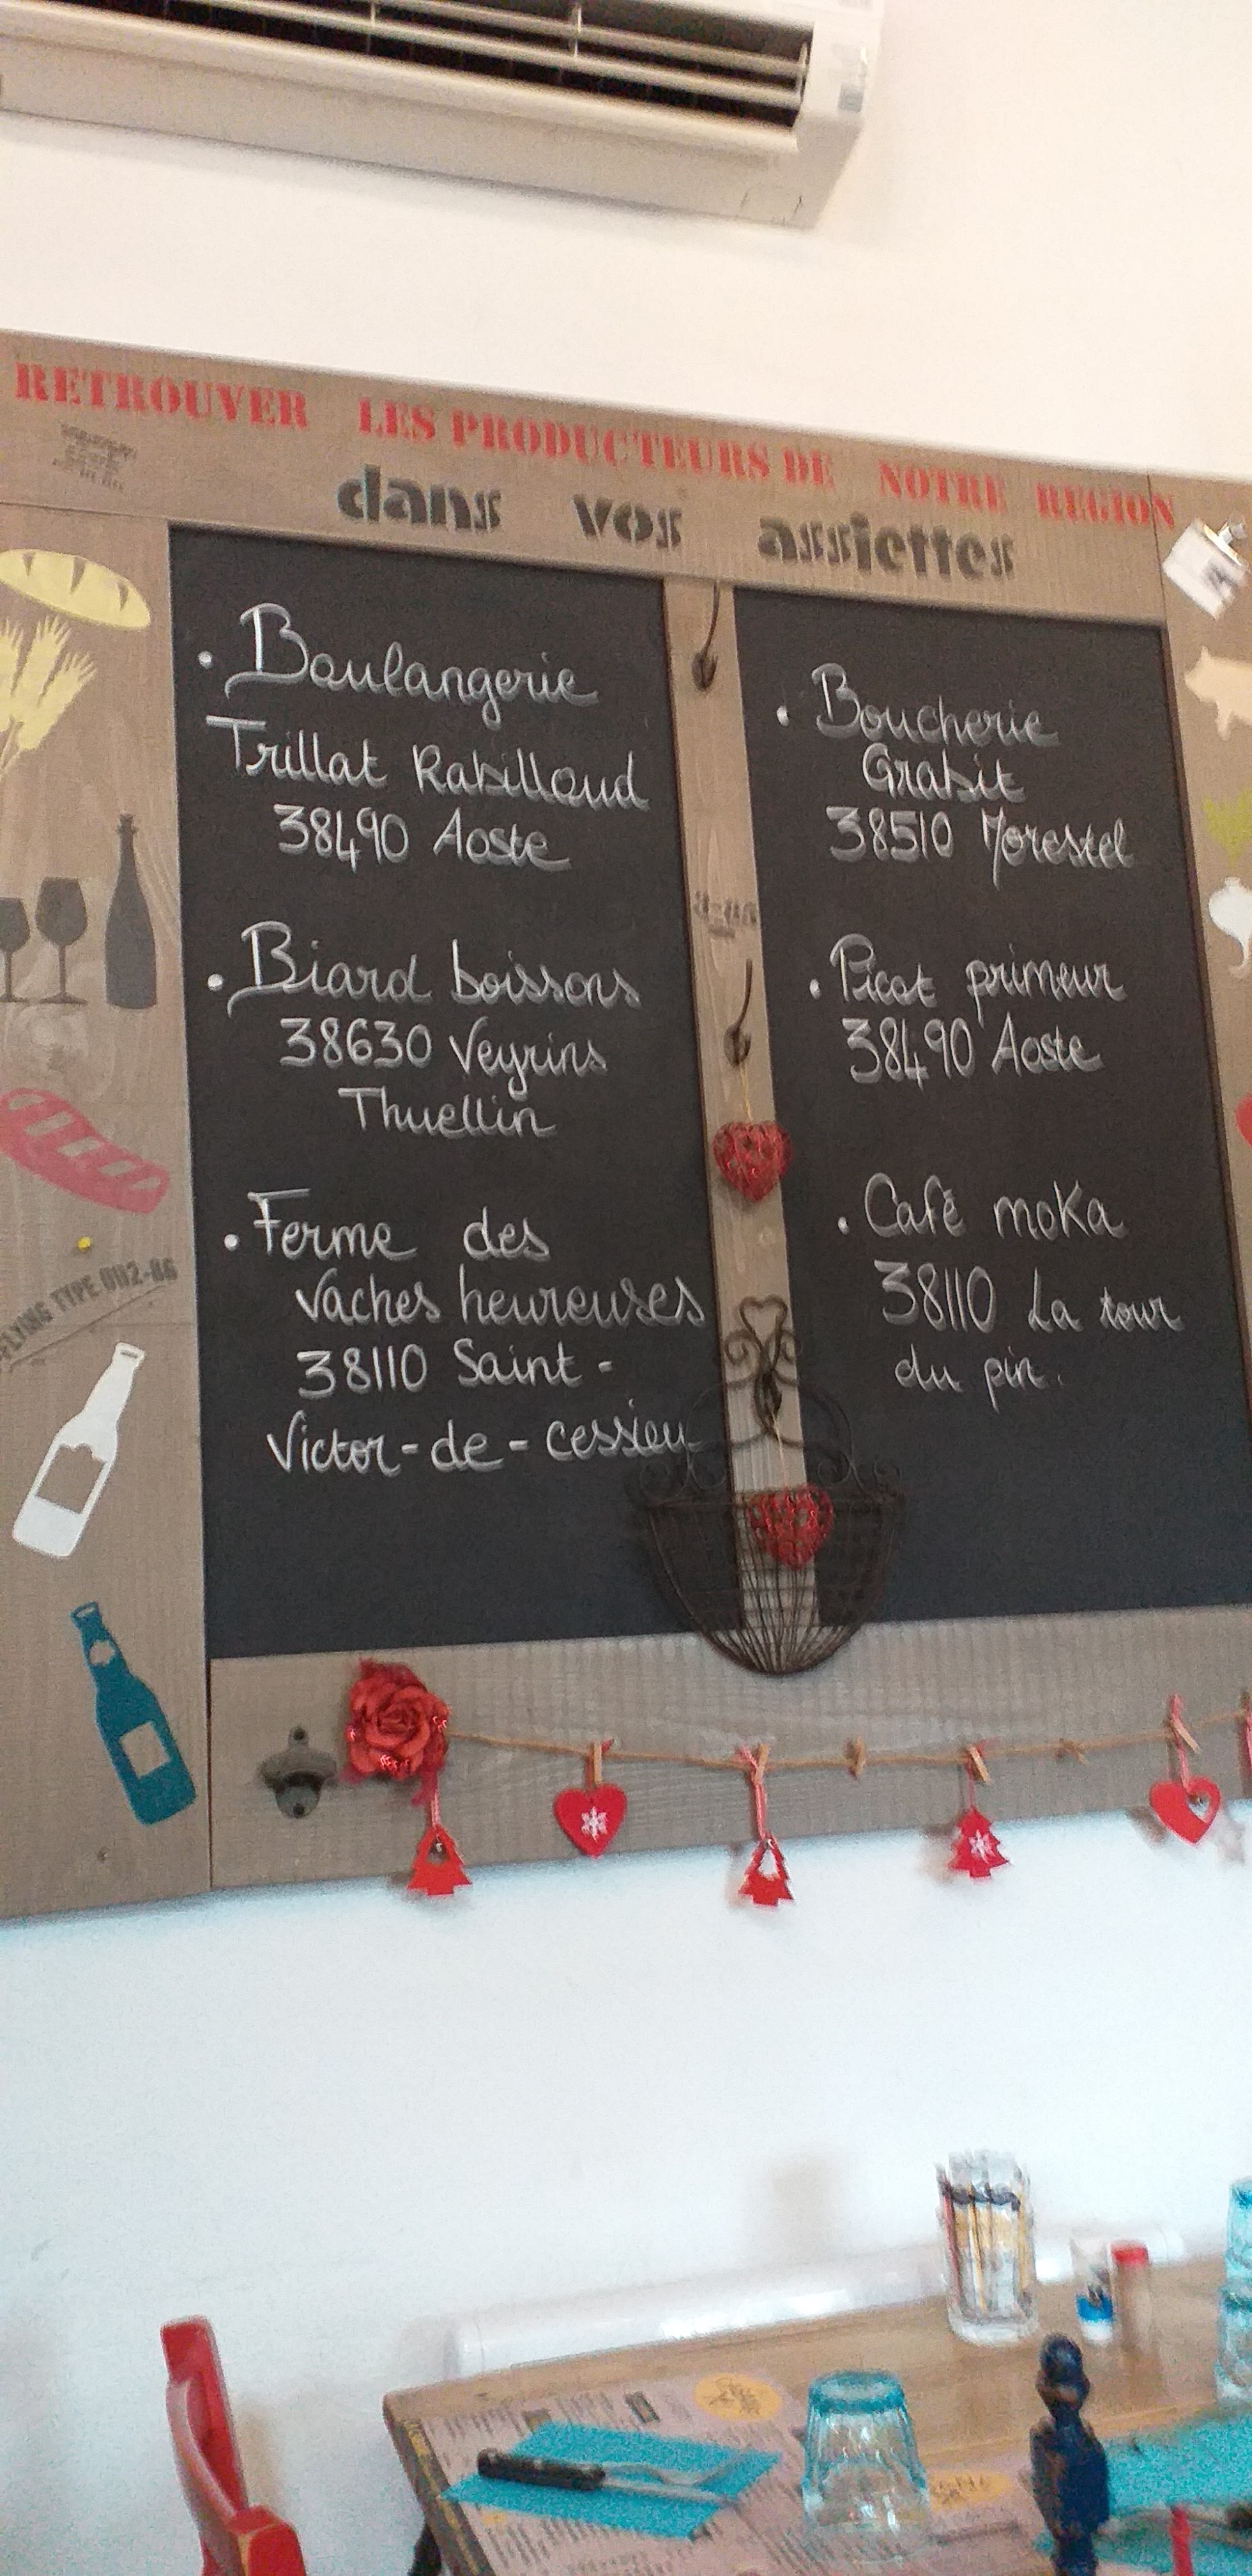 RETROUVER LES PRODUCTEURS DE NOTRE REGION
dans vos assiettes
• Boulangerie
Trillat Rabilloud
38490 Aoste
• Biard boissons
38630 Veyrins
Thuellin
• Ferme des
vaches heureuses
38110 Saint-
Victor-de-cessieu
• Boucherie
Grabit
38510 Morestel
• Picot primeur
38490 Aoste
• Café moka
38110 La tour
du pin.
FLYING TYPE
A